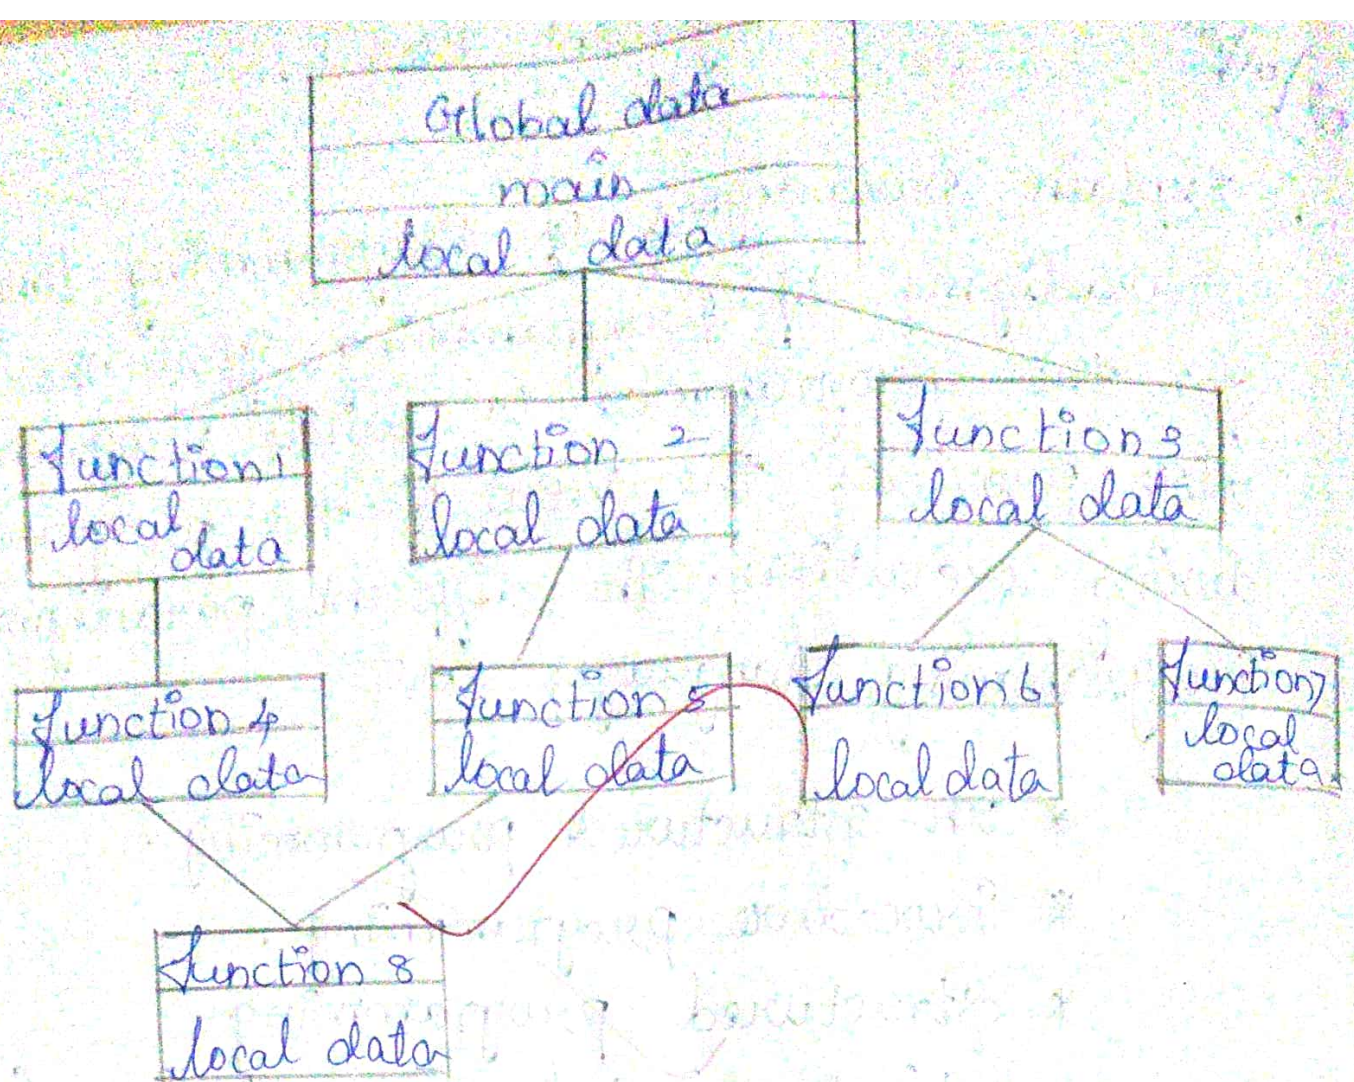 Global data
main
local data
function 1
local
data
function 2
local data
function 3
local data
function 4
local data
function 5
local data
function 6
local data
function 7
local
data
function 8
local data